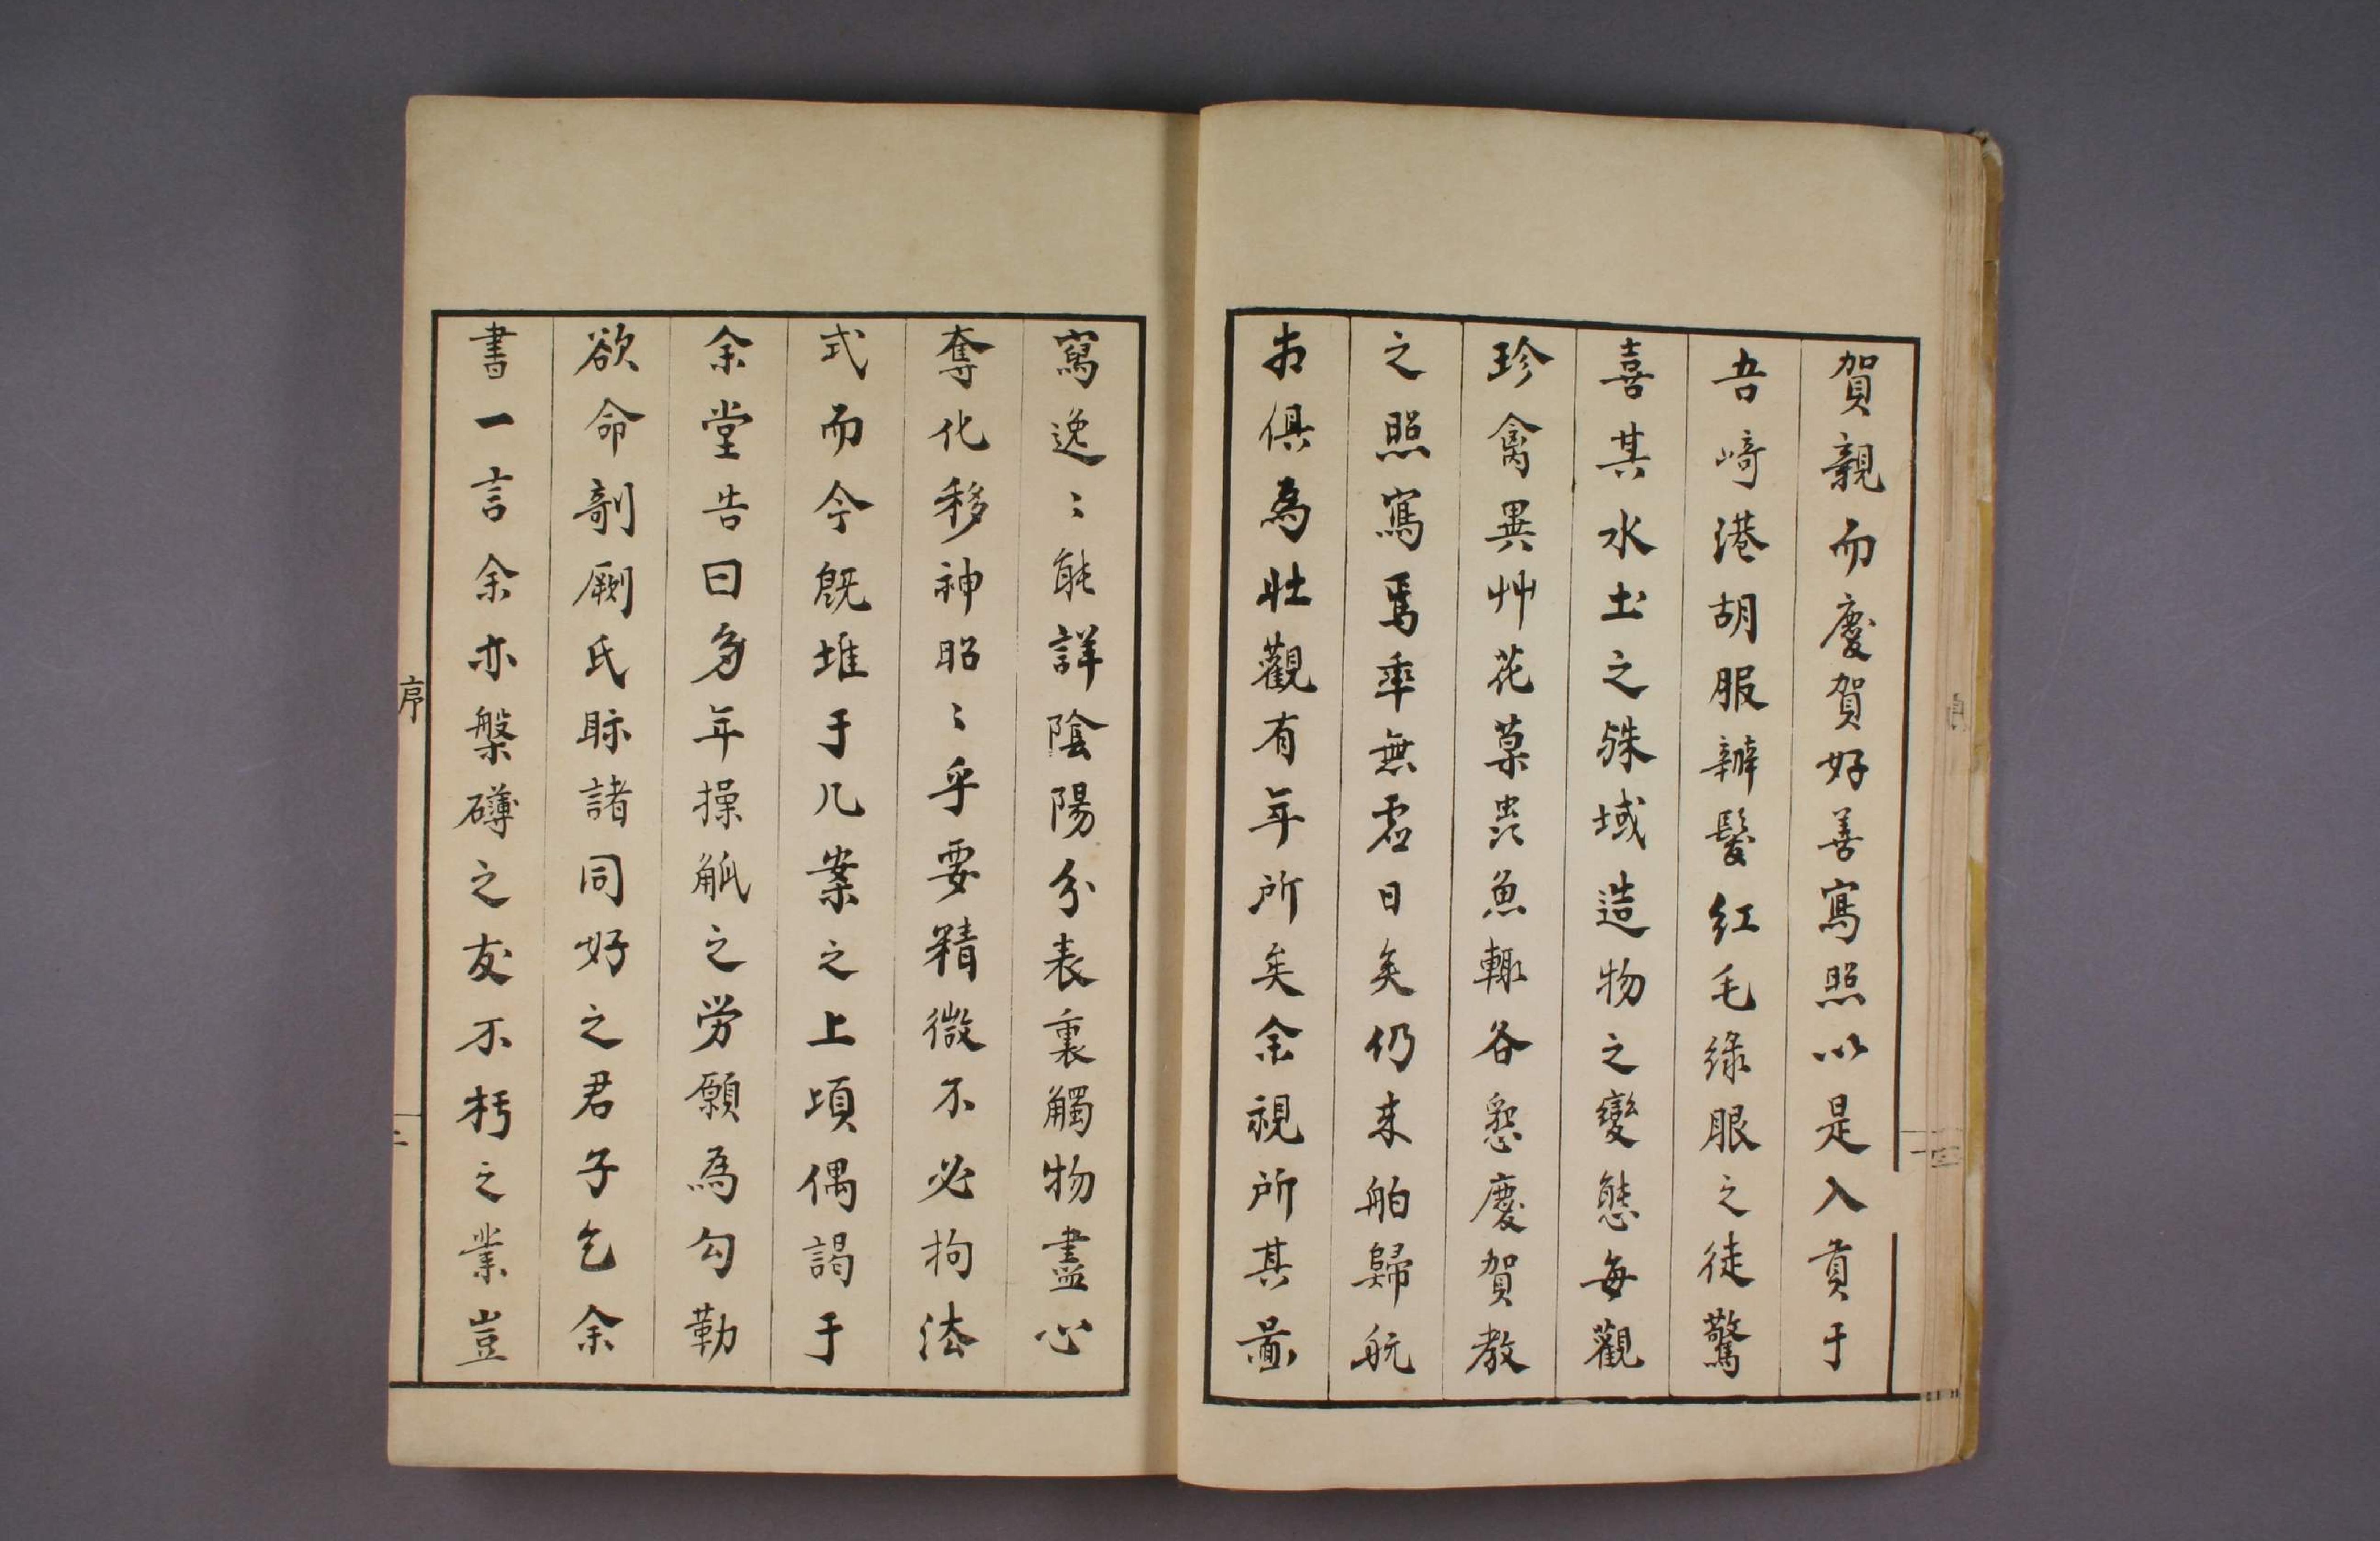 賀親而慶賀好善寫照以是入貢于
吾﨑港胡服辮髮紅毛緑眼之徒驚
喜其水土之殊域造物之變態每觀
珍禽異艸花菓蟲魚輙各慫慶賀教
之照寫焉率無虛日矣仍来舶歸航
亦俱為壯觀有年所矣余視所其啚
寫逸〻能詳陰陽分表裏觸物盡心
奪化移神昭〻乎要精微不必拘法
式而今既堆于几案之上頃偶謁于
余堂告曰多年操觚之労願為勾勒
欲命剞劂氏眎諸同好之君子乞余
書一言余亦槃礴之友不朽之業豈
序
二